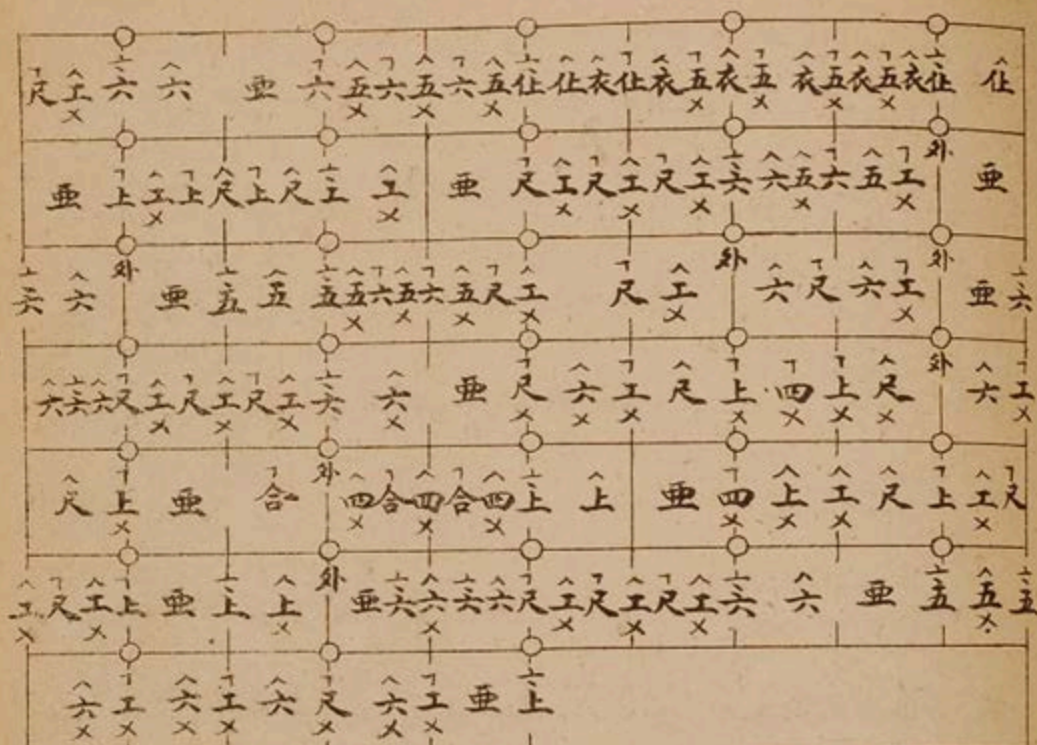 尺工六六亜六五六五六五仩仩衣仩衣五衣五衣五衣五衣仩仩
亜上工上尺上尺工工亜尺工尺工尺工六六五六五工外亜
六六外亜五五五五六五六五尺工尺工外六尺六工外亜六
六六六尺工尺工尺工六六亜尺六工尺上四上尺外六工
尺上亜合外四合四合四上上亜四上工尺上工尺
工尺工上亜上上外亜六六六六尺工尺工尺工六六亜五五五
六工六工六尺六工亜上